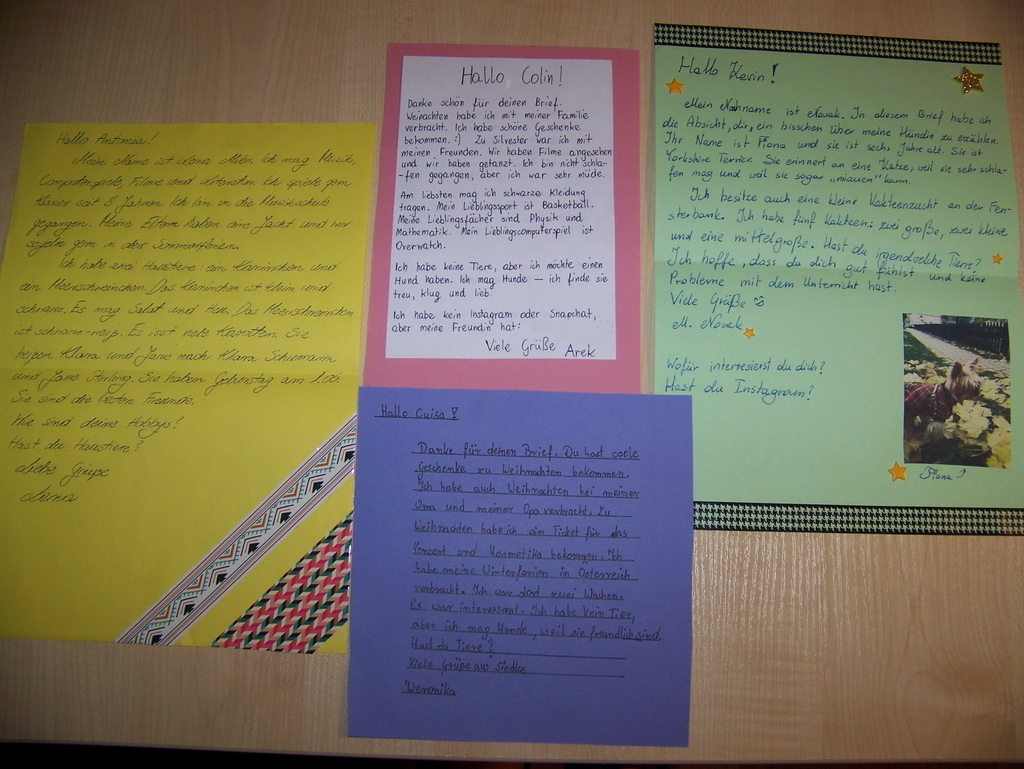 Hallo Antonia!
Mein Name ist Lena. Ich mag Musik,
Computerspiele, Filme und Ich spiele gern
Klavier seit 8 Jahren. Ich bin in die Musikschule
gegangen. Meine Eltern haben eine Jacht und wir
segeln gern in der Sommerferien.
Ich habe zwei Haustiere: ein Kaninchen und
ein Meerschweinchen. Das Kaninchen ist klein und
schwarz. Es mag Salat und Heu. Das Meerschweinchen
ist schwarz-weiß. Es isst viele Karotten. Sie
heißen Klara und Jane nach Klara Schumann
und Jane Stirling. Sie haben Geburtstag am 1.06.
Sie sind die besten Freunde.
Wie sind deine Hobbys?
Hast du Haustiere?
Liebe Grüße
Lena
Hallo Colin!
Danke schön für deinen Brief.
Weinachten habe ich mit meiner Familie
verbracht. Ich habe schöne Geschenke
bekommen. :) Zu Silvester war ich mit
meinen Freunden. Wir haben Filme angesehen
und wir haben getanzt. Ich bin nicht schla-
-fen gegangen, aber ich war sehr müde.
Am liebsten mag ich schwarze Kleidung
tragen. Mein Lieblingssport ist Basketball.
Meine Lieblingsfächer sind Physik und
Mathematik. Mein Lieblingscomputerspiel ist
Overwatch.
Ich habe keine Tiere, aber ich möchte einen
Hund haben. Ich mag Hunde — ich finde sie
treu, klug und lieb.
Ich habe kein Instagram oder Snapchat,
aber meine Freundin hat:
Viele Grüße Arek
Hallo Luisa!
Danke für deinen Brief. Du hast coole
Geschenke zu Weihnachten bekommen.
Ich habe auch Weihnachten bei meiner
Oma und meiner Opa verbracht. Zu
Weihnachten habe ich ein Ticket für das
Konzert und Kosmetika bekommen. Ich
habe meine Winterferien in Österreich
verbracht. Ich war dort zwei Wochen.
Es war interessant. Ich habe kein Tier,
aber ich mag Hunde, weil sie freundlich sind.
Hast du Tiere?
Viele Grüße aus Siedlce
Weronika
Hallo Kevin!
Mein Nahname ist Nowak. In diesem Brief habe ich
die Absicht, dir, ein bisschen über meine Hündin zu erzählen.
Ihr Name ist Fiona und sie ist sechs Jahre alt. Sie ist
Yorkshire Terrier. Sie erinnert an eine Katze, weil sie sehr schla-
fen mag und weil sie sogar „miauen" kann.
Ich besitze auch eine kleine Kakteenzucht an der Fen-
sterbank. Ich habe fünf Kakteen: zwei große, zwei kleine
und eine mittelgroße. Hast du irgendwelche Tiere?
Ich hoffe, dass du dich gut fühlst und keine
Probleme mit dem Unterricht hast.
Viele Grüße
M. Nowak
Wofür interresierst du dich?
Hast du Instagram?
Fiona